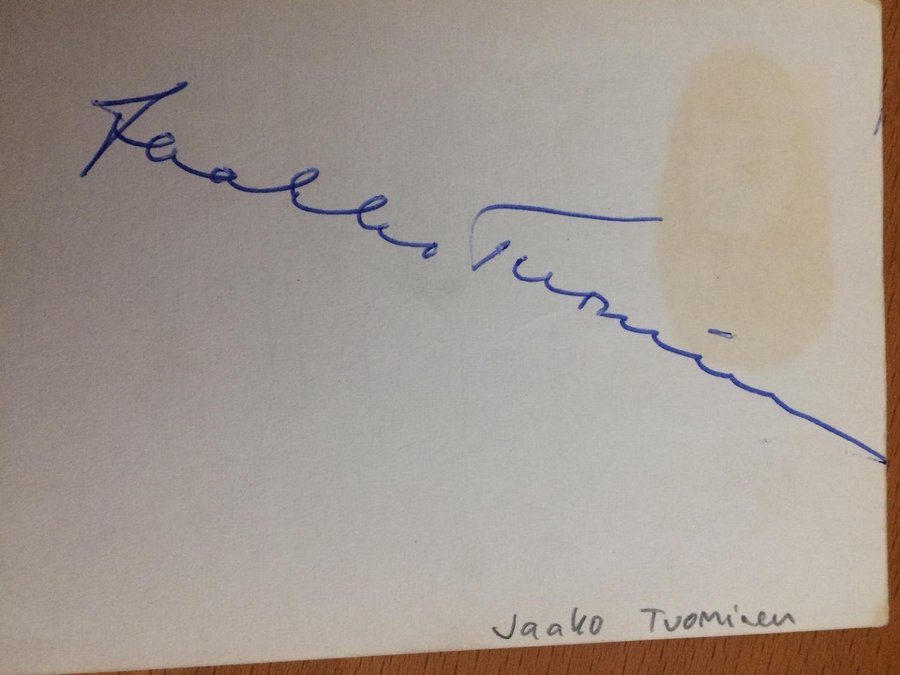 Jaakko Tuominen
Jaako Tuominen